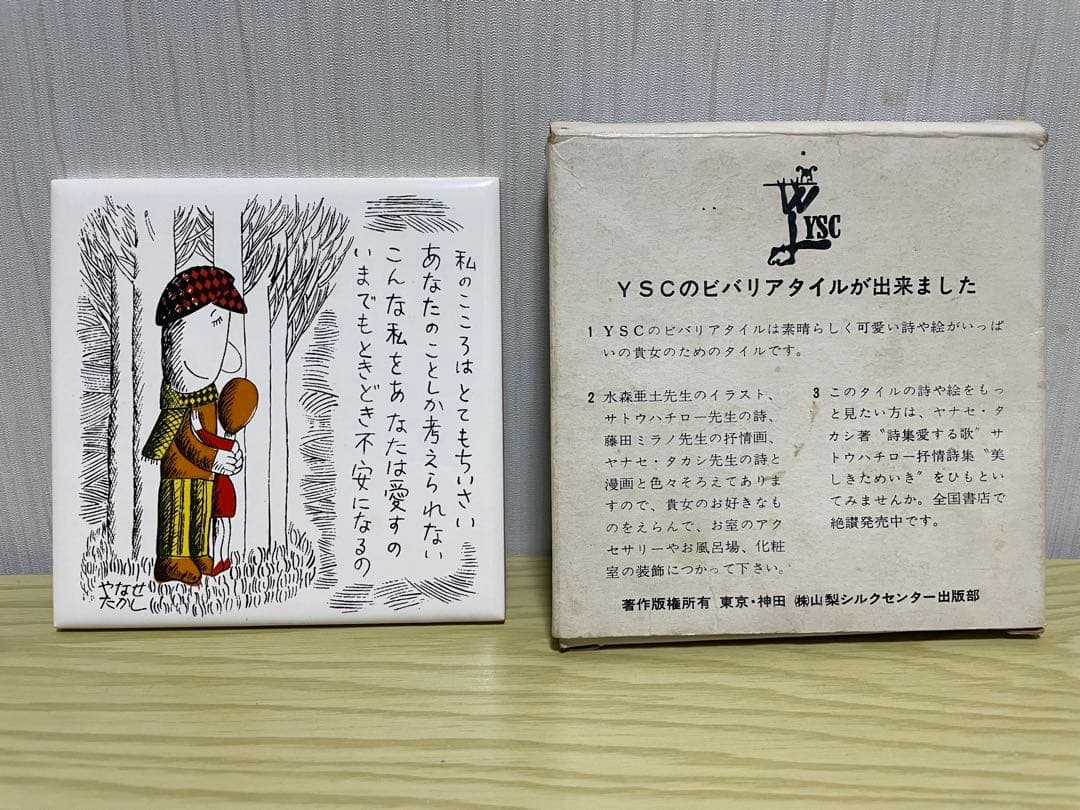 私のこころはとてもちいさい
あなたのことしか考えられない
こんな私をあなたは愛すの
いまでもときどき不安になるの
やなせ
たかし
YSC
YSCのビバリアタイルが出来ました
1 YSCのビバリアタイルは素晴らしく可愛い詩や絵がいっぱ
いの貴女のためのタイルです。
2 水森亜土先生のイラスト、
サトウハチロー先生の詩、
藤田ミラノ先生の抒情画、
ヤナセ・タカシ先生の詩と
漫画と色々そろえてありま
すので、貴女のお好きなも
のをえらんで、お室のアク
セサリーやお風呂場、化粧
室の装飾につかって下さい。
3 このタイルの詩や絵をもっ
と見たい方は、ヤナセ・タ
カシ著〝詩集愛する歌〟サ
トウハチロー抒情詩集〝美
しきためいき〟をひもとい
てみませんか。全国書店で
絶讃発売中です。
著作版権所有 東京・神田 ㈱山梨シルクセンター出版部